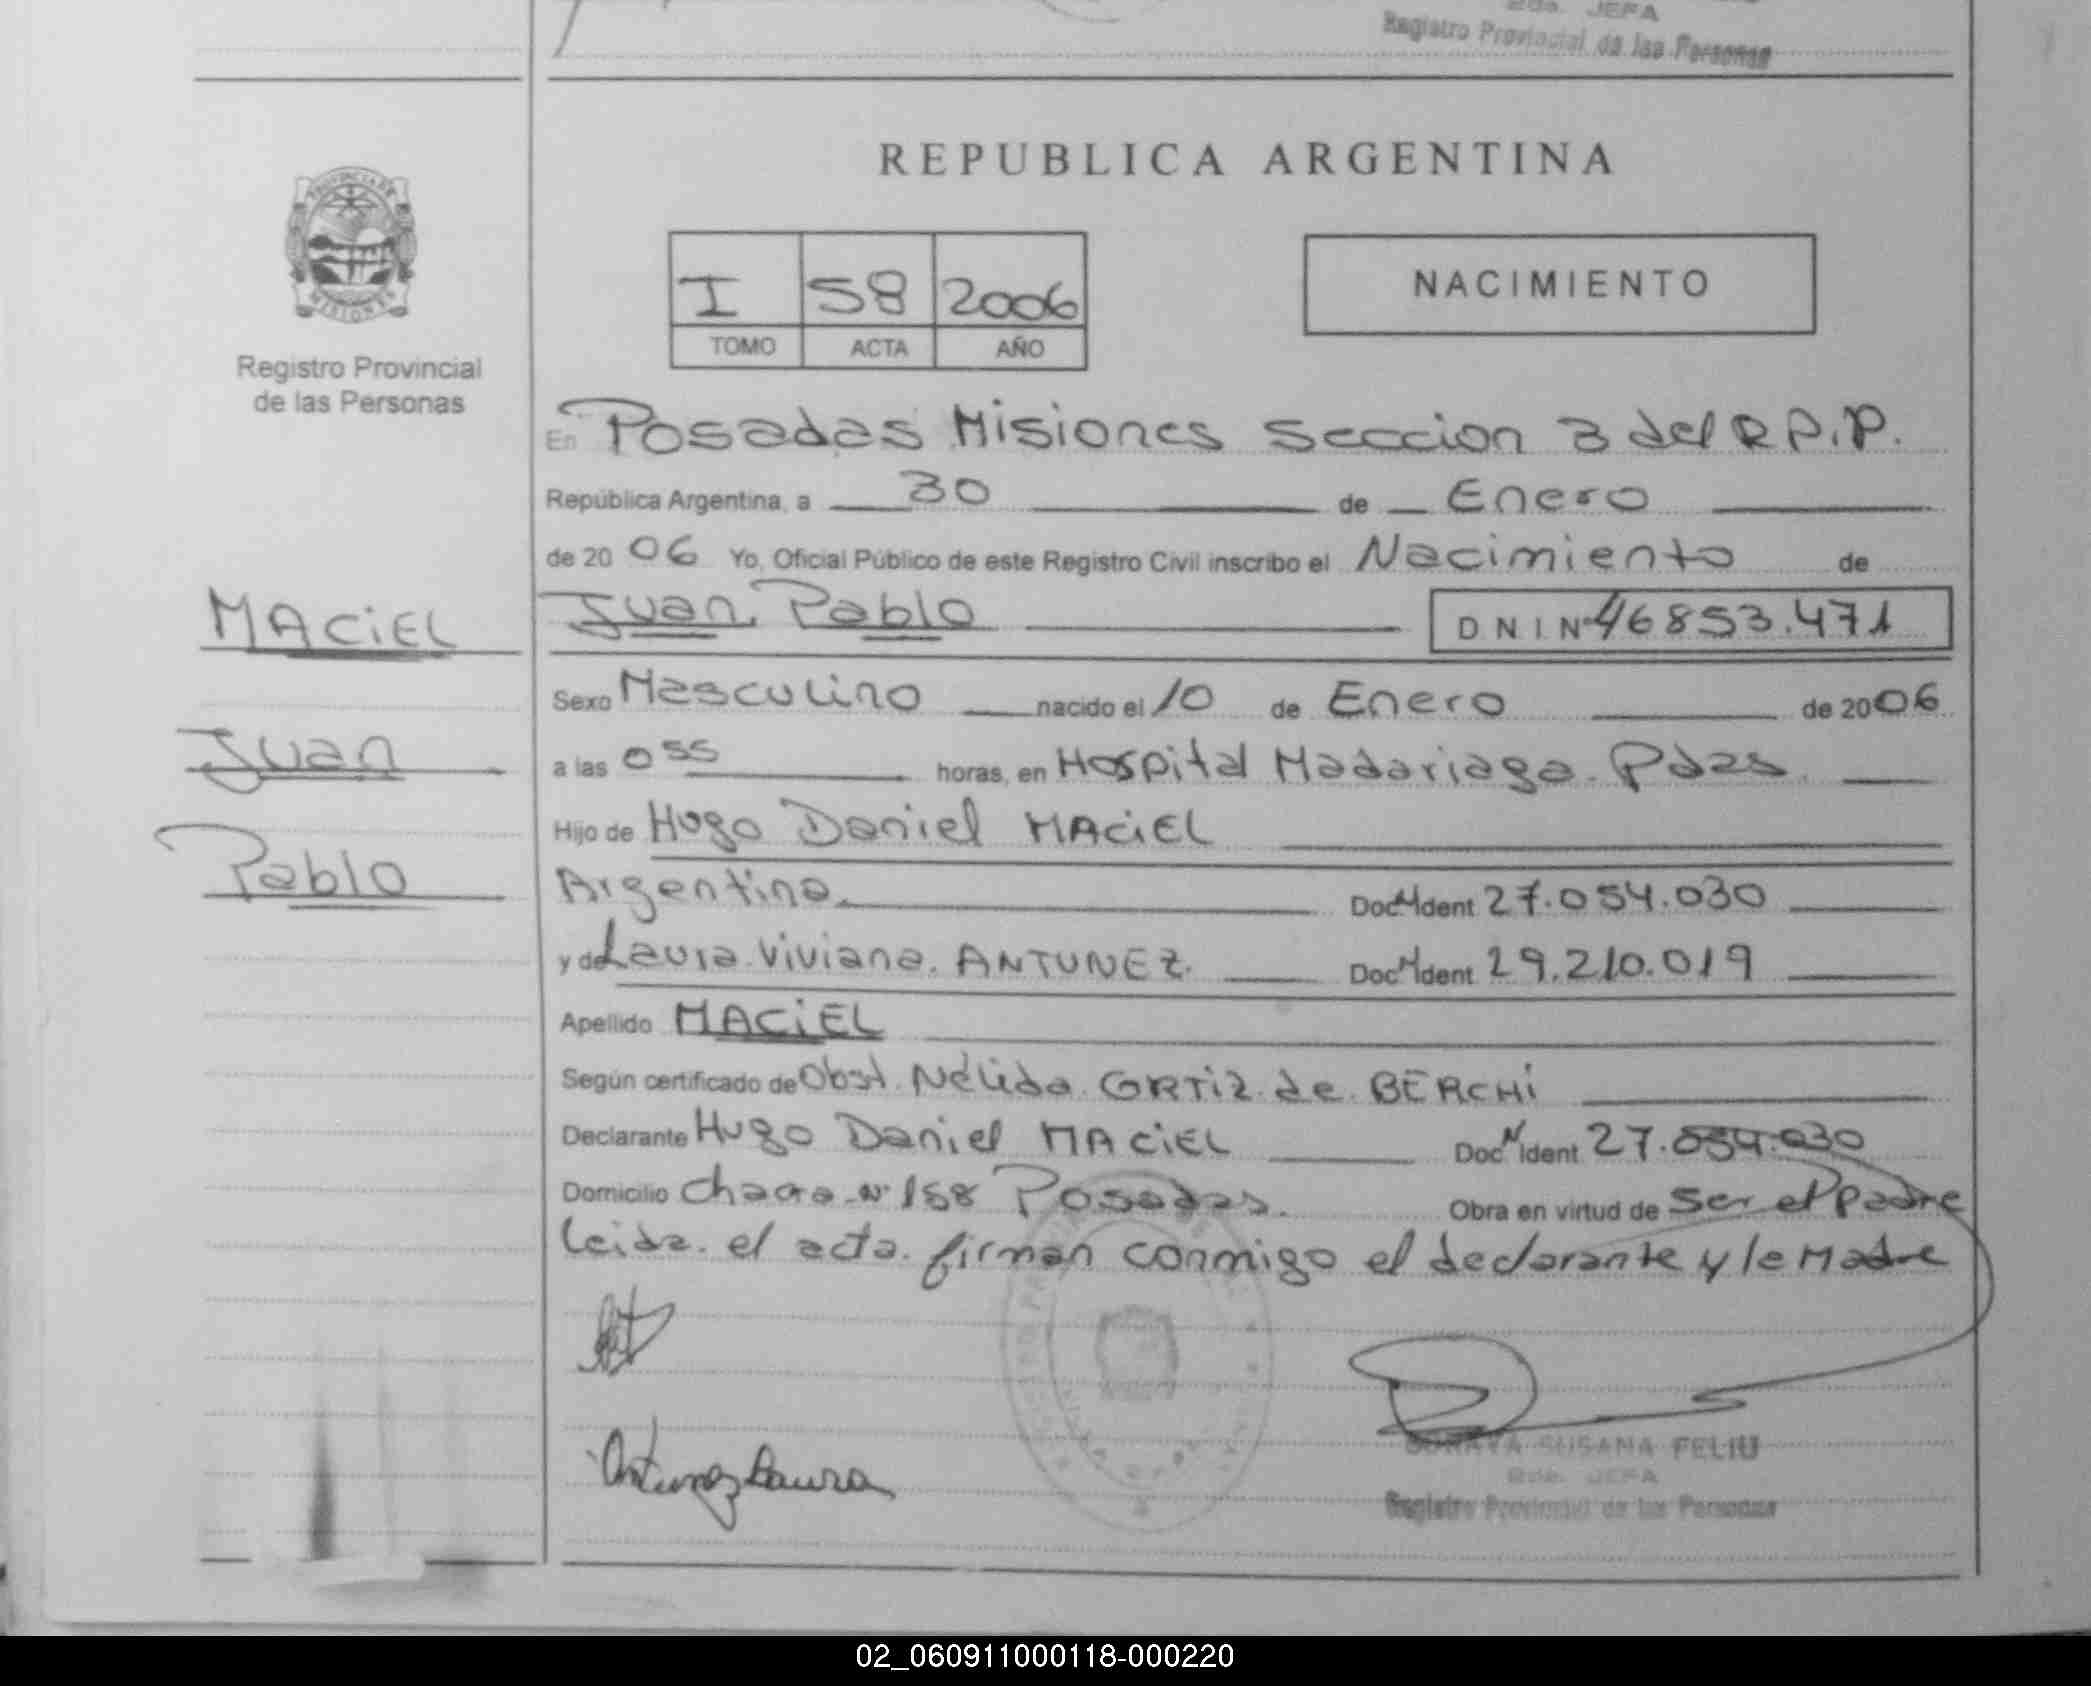 Rda. JEFA
Registro Provincial de las Personas
PROVINCIA DE
MISIONES
Registro Provincial
de las Personas
REPUBLICA ARGENTINA
I 58 2006
TOMO ACTA AÑO
NACIMIENTO
En Posadas Misiones Seccion 3 del R.P.P.
República Argentina, a 30 de Enero
de 2006 Yo, Oficial Público de este Registro Civil inscribo el Nacimiento de
MACIEL
Juan Pablo DNI Nº 46853.471
Sexo Masculino nacido el 10 de Enero de 2006
Juan
a las 0 55 horas, en Hospital Madariaga. Pdas.
Hijo de Hugo Daniel MACIEL
Pablo
Argentino. Doc N Ident 27.054.030
y de Laura Viviana. ANTUNEZ. Doc N Ident 29.210.019
Apellido MACIEL
Según certificado de Obst. Nélida ORTIZ de BERCHI
Declarante Hugo Daniel MACIEL Doc N Ident 27.054.030
Domicilio Chacra Nº 158 Posadas. Obra en virtud de Ser el Padre
leida el acta firman conmigo el declarante y la Madre
Antunez Laura
SORAYA SUSANA FELIU
Rda. JEFA
Registro Provincial de las Personas
02_060911000118-000220